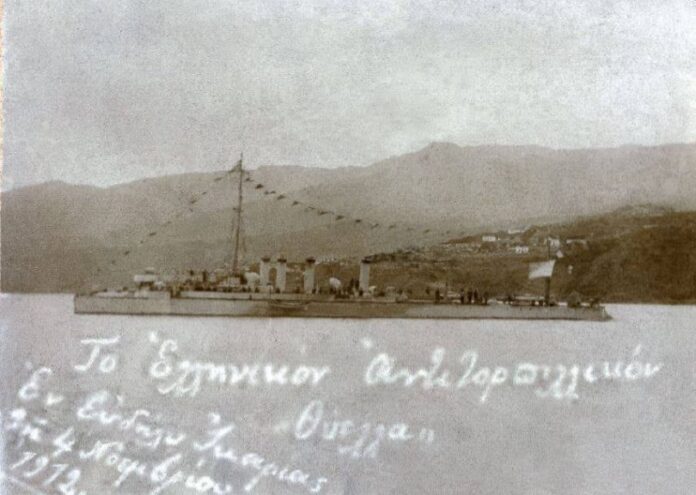 Το Ἑλληνικόν Ἀντιτορπιλλικόν
«Θύελλα»
Ἐν Εὐδήλῳ Ἰκαρίας
τῇ 4 Νοεμβρίου
1912